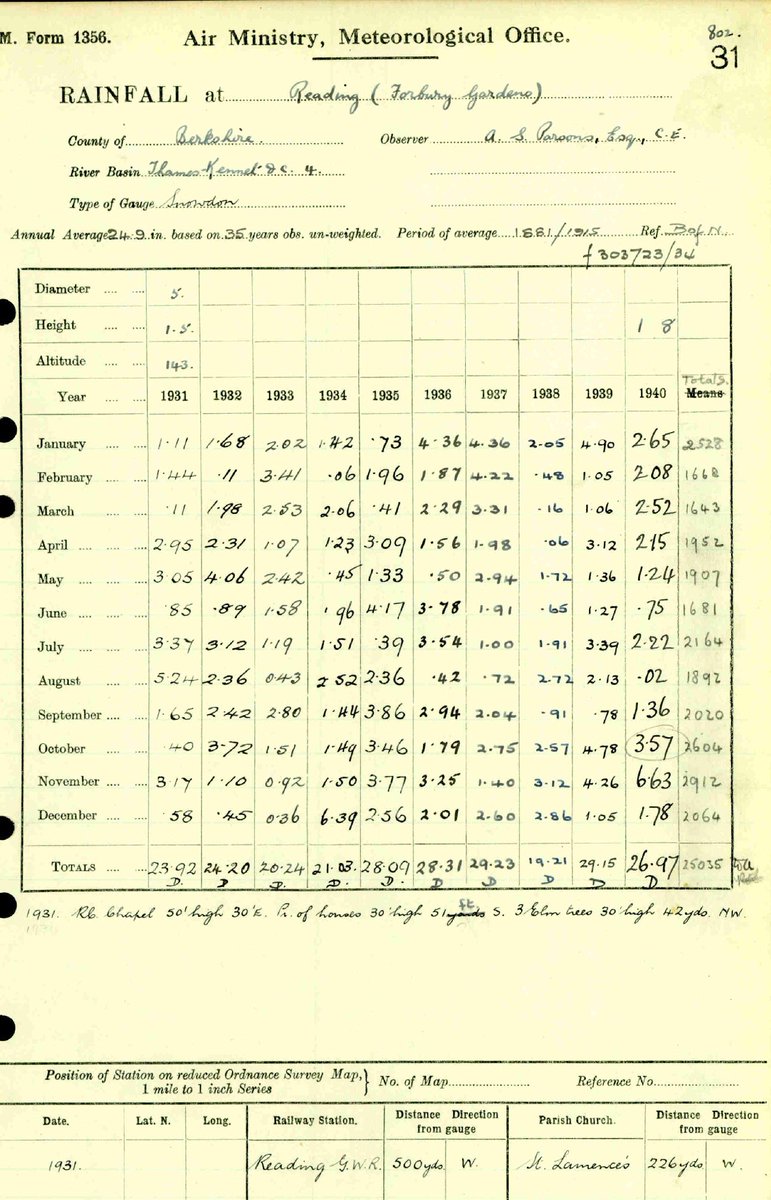 M. Form 1356.
Air Ministry, Meteorological Office.
802.
31
RAINFALL at Reading (Forbury Gardens)
County of Berkshire. Observer A. S. Parsons, Esq., C.E.
River Basin Thames-Kennet &c. 4.
Type of Gauge Snowdon
Annual Average 24.9 in. based on 35 years obs. un-weighted. Period of average 1881/1915 Ref. Bof N
f 303723/34
Diameter .... .... 5.
Height .... .... 1.5. 1 8
Altitude .... .... 143.
Totals.
Year .... .... 1931 1932 1933 1934 1935 1936 1937 1938 1939 1940 Means
January .... .... 1.11 1.68 2.02 1.42 .73 4.36 4.36 2.05 4.90 2.65 2528
February .... .... 1.44 .11 3.41 .06 1.96 1.87 4.22 .48 1.05 2.08 1668
March .... .... .11 1.98 2.53 2.06 .41 2.29 3.31 .16 1.06 2.52 1643
April .... .... 2.95 2.31 1.07 1.23 3.09 1.56 1.98 .06 3.12 2.15 1952
May .... .... 3.05 4.06 2.42 .45 1.33 .50 2.94 1.72 1.36 1.24 1907
June .... .... .85 .89 1.58 .96 4.17 3.78 1.91 .65 1.27 .75 1681
July .... .... 3.37 3.12 1.19 1.51 .39 3.54 1.00 1.91 3.39 2.22 2164
August .... .... 5.24 2.36 0.43 2.52 2.36 .42 .72 2.72 2.13 .02 1892
September .... .... 1.65 2.42 2.80 1.44 3.86 2.94 2.04 .91 .78 1.36 2020
October .... .... .40 3.72 1.51 1.49 3.46 1.79 2.75 2.57 4.78 3.57 2604
November .... .... 3.17 1.10 0.92 1.50 3.77 3.25 1.40 3.12 4.26 6.63 2912
December .... .... .58 .45 0.36 6.39 2.56 2.01 2.60 2.86 1.05 1.78 2064
Totals .... .... 23.92 24.20 20.24 21.03. 28.09 28.31 29.23 19.21 29.15 26.97 25035
D. D D. D. D. D D D D D
1931. R.C. Chapel 50' high 30' E. Pr. of houses 30' high 51 yards ft. S. 3 Elm trees 30' high 42 yds. NW.
Position of Station on reduced Ordnance Survey Map, 1 mile to 1 inch Series } No. of Map Reference No.
Date. Lat. N. Long. Railway Station. Distance Direction from gauge Parish Church. Distance Direction from gauge
1931. Reading G.W.R. 500yds. W. St. Lawrence's 226yds. W.